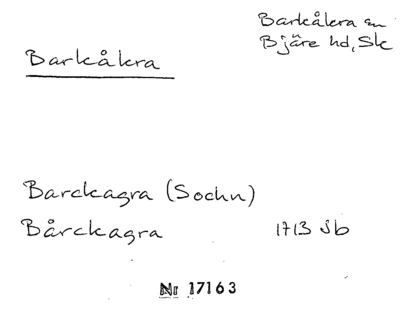 Barkåkra sn
Bjäre hd, Sk
Barkåkra
Barckagra (Sochn)
Bårckagra 1713 Jb
Nr 17163